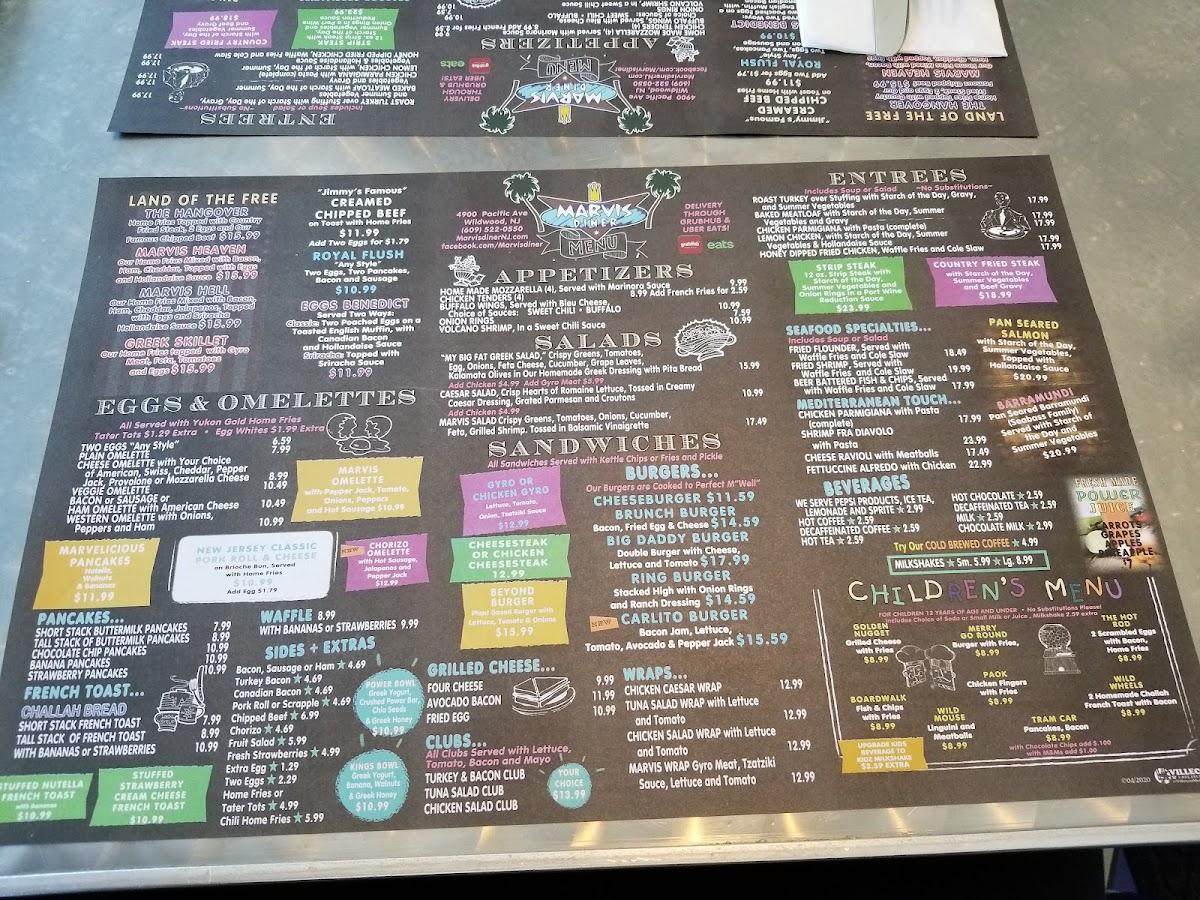 LAND OF THE FREE
THE HANGOVER
Home Fries Topped with Country
Fried Steak, 2 Eggs and Our
Famous Chipped Beef $15.99
MARVIS HEAVEN
Our Home Fries Mixed with Bacon,
Ham, Cheddar, Topped with Eggs
and Hollandaise Sauce $15.99
MARVIS HELL
Our Home Fries Mixed with Bacon,
Ham, Cheddar, Jalapenos, Topped
with Eggs and Sriracha
Hollandaise Sauce $15.99
GREEK SKILLET
Our Home Fries topped with Gyro
Meat, Feta, Tomatoes
and Eggs $15.99
"Jimmy's Famous"
CREAMED
CHIPPED BEEF
on Toast with Home Fries
$11.99
Add Two Eggs for $1.79
ROYAL FLUSH
"Any Style"
Two Eggs, Two Pancakes,
Bacon and Sausage
$10.99
EGGS BENEDICT
Served Two Ways:
Classic: Two Poached Eggs on a
Toasted English Muffin, with
Canadian Bacon
and Hollandaise Sauce
Sriracha: Topped with
Sriracha Sauce
$11.99
4900 Pacific Ave
Wildwood, NJ
(609) 522-0550
MarvisdinerNJ.com
facebook.com/Marvisdiner
MARVIS
DINER
MENU
DELIVERY
THROUGH
GRUBHUB &
UBER EATS!
eats
APPETIZERS
HOME MADE MOZZARELLA (4), Served with Marinara Sauce 9.99
CHICKEN TENDERS (4) 8.99 Add French Fries for 2.59
BUFFALO WINGS, Served with Bleu Cheese, 10.99
Choice of Sauces: SWEET CHILI • BUFFALO
ONION RINGS 7.59
VOLCANO SHRIMP, In a Sweet Chili Sauce 10.99
SALADS
"MY BIG FAT GREEK SALAD," Crispy Greens, Tomatoes,
Egg, Onions, Feta Cheese, Cucumber, Grape Leaves,
Kalamata Olives in Our Homemade Greek Dressing with Pita Bread 15.99
Add Chicken $4.99 Add Gyro Meat $5.99
CAESAR SALAD, Crisp Hearts of Romaine Lettuce, Tossed in Creamy
Caesar Dressing, Grated Parmesan and Croutons 10.99
Add Chicken $4.99
MARVIS SALAD Crispy Greens, Tomatoes, Onions, Cucumber,
Feta, Grilled Shrimp. Tossed in Balsamic Vinaigrette 17.49
ENTREES
Includes Soup or Salad ~No Substitutions~
ROAST TURKEY over Stuffing with Starch of the Day, Gravy,
and Summer Vegetables 17.99
BAKED MEATLOAF with Starch of the Day, Summer
Vegetables and Gravy 17.99
CHICKEN PARMIGIANA with Pasta (complete) 17.99
LEMON CHICKEN, with Starch of the Day, Summer
Vegetables & Hollandaise Sauce 17.99
HONEY DIPPED FRIED CHICKEN, Waffle Fries and Cole Slaw 17.99
STRIP STEAK
12 oz. Strip Steak with
Starch of the Day,
Summer Vegetables and
Onion Rings in a Port Wine
Reduction Sauce
$23.99
COUNTRY FRIED STEAK
with Starch of the Day,
Summer Vegetables
and Beef Gravy
$18.99
SEAFOOD SPECIALTIES...
Includes Soup or Salad
FRIED FLOUNDER, Served with
Waffle Fries and Cole Slaw 18.49
FRIED SHRIMP, Served with
Waffle Fries and Cole Slaw 19.99
BEER BATTERED FISH & CHIPS, Served
with Waffle Fries and Cole Slaw 17.99
PAN SEARED
SALMON
with Starch of the Day,
Summer Vegetables,
Topped with
Hollandaise Sauce
$20.99
MEDITERRANEAN TOUCH...
CHICKEN PARMIGIANA with Pasta
(complete) 17.99
SHRIMP FRA DIAVOLO
with Pasta 23.99
CHEESE RAVIOLI with Meatballs 17.49
FETTUCCINE ALFREDO with Chicken 22.99
BARRAMUNDI
Pan Seared Barramundi
(Seabass Family)
Served with Starch of
the Day and
Summer Vegetables
$20.99
EGGS & OMELETTES
All Served with Yukon Gold Home Fries
Tater Tots $1.29 Extra • Egg Whites $1.99 Extra
TWO EGGS "Any Style" 6.59
PLAIN OMELETTE 7.99
CHEESE OMELETTE with Your Choice
of American, Swiss, Cheddar, Pepper
Jack, Provolone or Mozzarella Cheese 8.99
VEGGIE OMELETTE 10.49
BACON or SAUSAGE or
HAM OMELETTE with American Cheese 10.49
WESTERN OMELETTE with Onions,
Peppers and Ham 10.99
MARVIS
OMELETTE
with Pepper Jack, Tomato,
Onions, Peppers
and Hot Sausage $10.99
MARVELICIOUS
PANCAKES
Nutella,
Walnuts
& Bananas
$11.99
NEW JERSEY CLASSIC
PORK ROLL & CHEESE
on Brioche Bun, Served
with Home Fries
$10.99
Add Egg $1.79
NEW
CHORIZO
OMELETTE
with Hot Sausage,
Jalapenos and
Pepper Jack
$12.99
PANCAKES...
SHORT STACK BUTTERMILK PANCAKES 7.99
TALL STACK OF BUTTERMILK PANCAKES 8.99
CHOCOLATE CHIP PANCAKES 10.99
BANANA PANCAKES 10.99
STRAWBERRY PANCAKES 10.99
FRENCH TOAST...
CHALLAH BREAD
SHORT STACK FRENCH TOAST 7.99
TALL STACK OF FRENCH TOAST 8.99
WITH BANANAS or STRAWBERRIES 10.99
STUFFED NUTELLA
FRENCH TOAST
with Bananas
$10.99
STUFFED
STRAWBERRY
CREAM CHEESE
FRENCH TOAST
$10.99
WAFFLE 8.99
WITH BANANAS or STRAWBERRIES 9.99
SIDES + EXTRAS
Bacon, Sausage or Ham ★ 4.69
Turkey Bacon ★ 4.69
Canadian Bacon ★ 4.69
Pork Roll or Scrapple ★ 4.69
Chipped Beef ★ 6.99
Chorizo ★ 4.69
Fruit Salad ★ 5.99
Fresh Strawberries ★ 4.99
Extra Egg ★ 1.29
Two Eggs ★ 2.29
Home Fries or
Tater Tots ★ 4.99
Chili Home Fries ★ 5.99
POWER BOWL
Greek Yogurt,
Crushed Power Bar,
Chia Seeds
& Greek Honey
$10.99
KINGS BOWL
Greek Yogurt,
Banana, Walnuts
& Greek Honey
$10.99
SANDWICHES
All Sandwiches Served with Kettle Chips or Fries and Pickle
GYRO OR
CHICKEN GYRO
Lettuce, Tomato,
Onion, Tzatziki Sauce
$12.99
CHEESESTEAK
OR CHICKEN
CHEESESTEAK
12.99
BEYOND
BURGER
Plant Based Burger with
Lettuce, Tomato & Onions
$15.99
BURGERS...
Our Burgers are Cooked to Perfect M"Well"
CHEESEBURGER $11.59
BRUNCH BURGER
Bacon, Fried Egg & Cheese $14.59
BIG DADDY BURGER
Double Burger with Cheese,
Lettuce and Tomato $17.99
RING BURGER
Stacked High with Onion Rings
and Ranch Dressing $14.59
NEW
CARLITO BURGER
Bacon Jam, Lettuce,
Tomato, Avocado & Pepper Jack $15.59
GRILLED CHEESE...
FOUR CHEESE 9.99
AVOCADO BACON 11.99
FRIED EGG 10.99
CLUBS...
All Clubs Served with Lettuce,
Tomato, Bacon and Mayo
TURKEY & BACON CLUB
TUNA SALAD CLUB
CHICKEN SALAD CLUB
YOUR
CHOICE
$13.99
WRAPS...
CHICKEN CAESAR WRAP 12.99
TUNA SALAD WRAP with Lettuce
and Tomato 12.99
CHICKEN SALAD WRAP with Lettuce
and Tomato 12.99
MARVIS WRAP Gyro Meat, Tzatziki
Sauce, Lettuce and Tomato 12.99
BEVERAGES
WE SERVE PEPSI PRODUCTS, ICE TEA,
LEMONADE AND SPRITE ★ 2.99
HOT COFFEE ★ 2.59
DECAFFEINATED COFFEE ★ 2.59
HOT TEA ★ 2.59
HOT CHOCOLATE ★ 2.59
DECAFFEINATED TEA ★ 2.59
MILK ★ 2.59
CHOCOLATE MILK ★ 2.99
Try Our COLD BREWED COFFEE ★ 4.99
MILKSHAKES ★ Sm. 5.99 ★ Lg. 8.99
FRESH MADE
POWER
JUICE
CARROTS
GRAPES
APPLES
PINEAPPLE
CHILDREN'S MENU
FOR CHILDREN 12 YEARS OF AGE AND UNDER • No Substitutions Please!
Includes Choice of Soda or Small Milk or Juice, Milkshake 2.59 extra
GOLDEN
NUGGET
Grilled Cheese
with Fries
$8.99
MERRY
GO ROUND
Burger with Fries,
$8.99
THE HOT
ROD
2 Scrambled Eggs
with Bacon,
Home Fries
$8.99
PAOK
Chicken Fingers
with Fries
$8.99
BOARDWALK
Fish & Chips
with Fries
$8.99
WILD
MOUSE
Linguini and
Meatballs
$8.99
TRAM CAR
Pancakes, Bacon
$8.99
with Chocolate Chips add $.100
with M&Ms add $1.00
WILD
WHEELS
2 Homemade Challah
French Toast with Bacon
$8.99
UPGRADE KIDS
BEVERAGE TO
KIDZ MILKSHAKE
$2.59 EXTRA
©04/2020